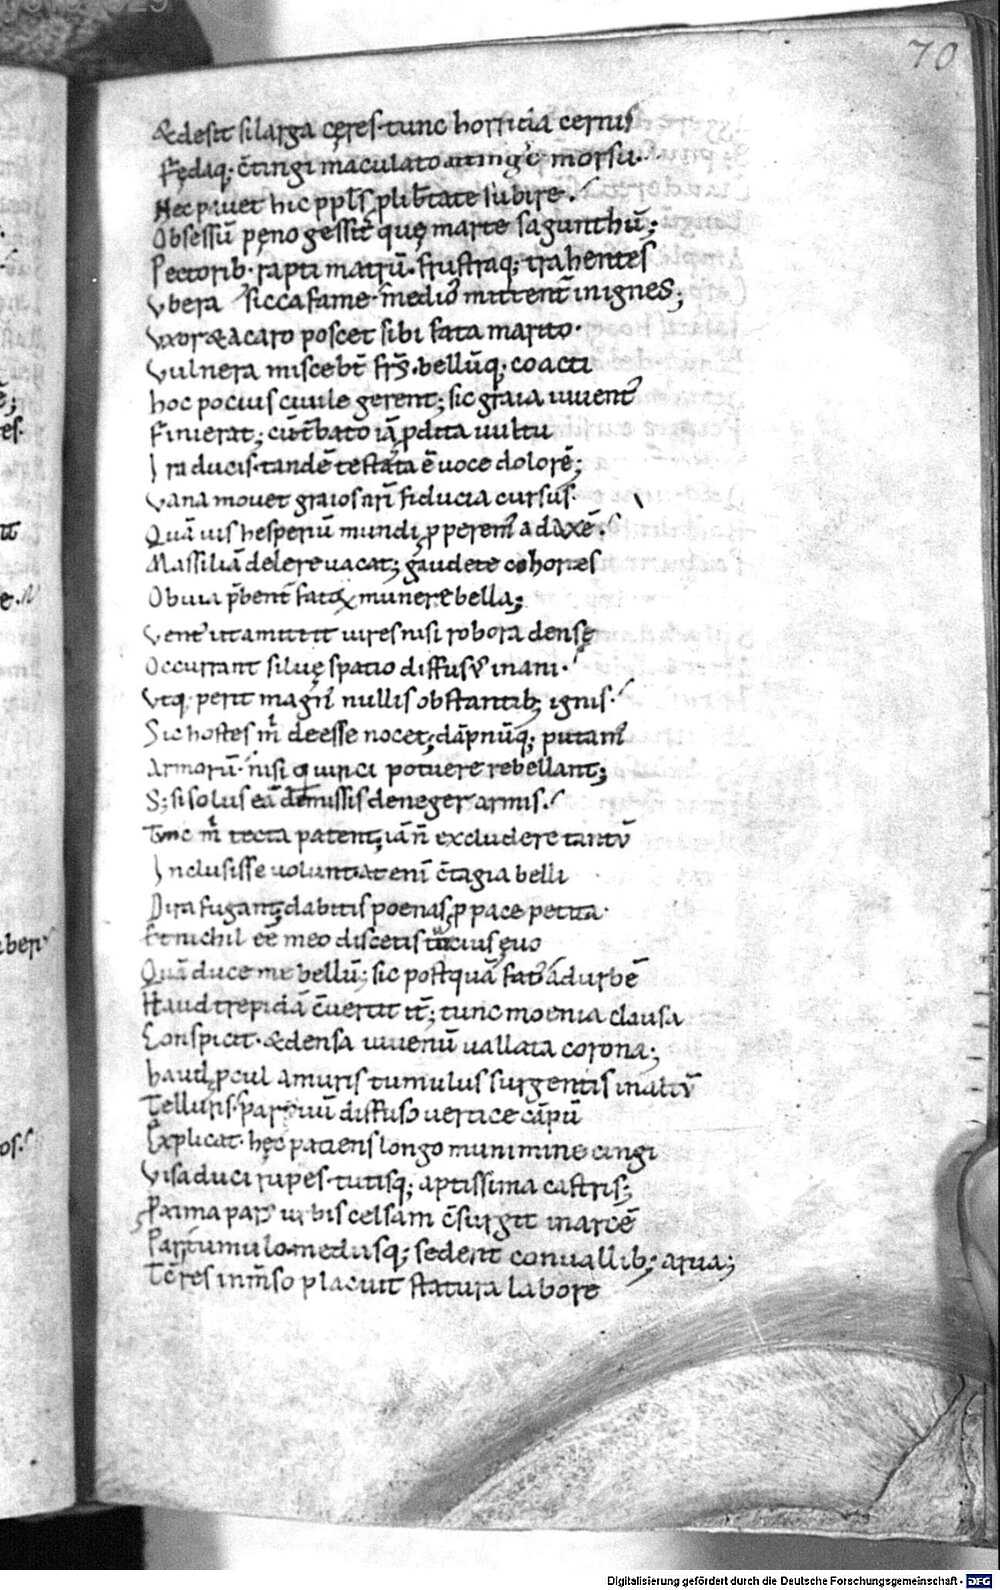 70
& desit si larga cęres· tunc horrida cerni
Fędaq; c̄tingi maculato attinge͛ morsu·
Hec pauet hic pplꝰ p lib̄tate subire·
Obsessū pęno gessit quę marte sagunthū;
Pectorib· rapti matrū· frustraq; trahentes
Vbera siccafame· medioꝰ mittent̄ in ignes;
Vxor & a caro poscet sibi fata marito·
Vulnera miscebt̄ fr̄s· bellūq; coacti
hoc pocius ciuile gerent; sic graia iuuentꝰ
Finierat; cū t̄bato iā ꝓdita uultu
Ira ducis· tandē testata ē uoce dolorē;
Vana mouet graios nr̄i fiducia cursus·
Quā uis hesperiū mundi ꝓperemꝰ ad axē·
Massiliā delere uacat; gaudete cohortes
Obuia p̄bent̄ fatoꝝ munere bella;
Ventꝰ ut amittit uires nisi robora densę
Occurrant siluę spatio diffusꝰ inani·
Vtq; perit magnꝰ nullis obstantib; ignis·
Sic hostes m̄ deesse nocet; dāpnūq; putamꝰ
Armorū· nisi qui uinci potuere rebellant;
S; si solus eā demissis deneger armis·
Tunc m̄ tecta patent; iā n̄ excludere tantū
Inclusisse uolunt at enī c̄tagia belli
Dira fugant; dabitis poenas ꝓ pace petita·
Et nichil eē meo discetis tucius ęuo
Quā duce me bellū; sic postquā fatꝰ ad urbē
Haud trepidā c̄uertit it̄; tunc moenia clausa
Conspicit· & densa iuuenū uallata corona;
haud ꝓcul a muris tumulus surgentis in altū
Telluris· paruū diffuso uertice cāpū
Explicat· hęc patiens longo munimine cingi
Visa duci rupes· tutisq; aptissima castris;
Proxima pars urbis celsam c̄surgit in arcē
Par tumulo· mediisq; sedent conuallib; arua;
Tc̄ res inm̄so placuit statura labore
Digitalisierung gefördert durch die Deutsche Forschungsgemeinschaft - DFG